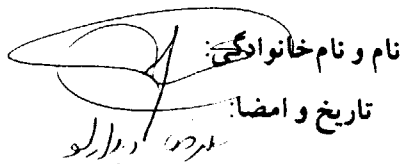 نام و نام خانوادگی:
تاریخ و امضا: